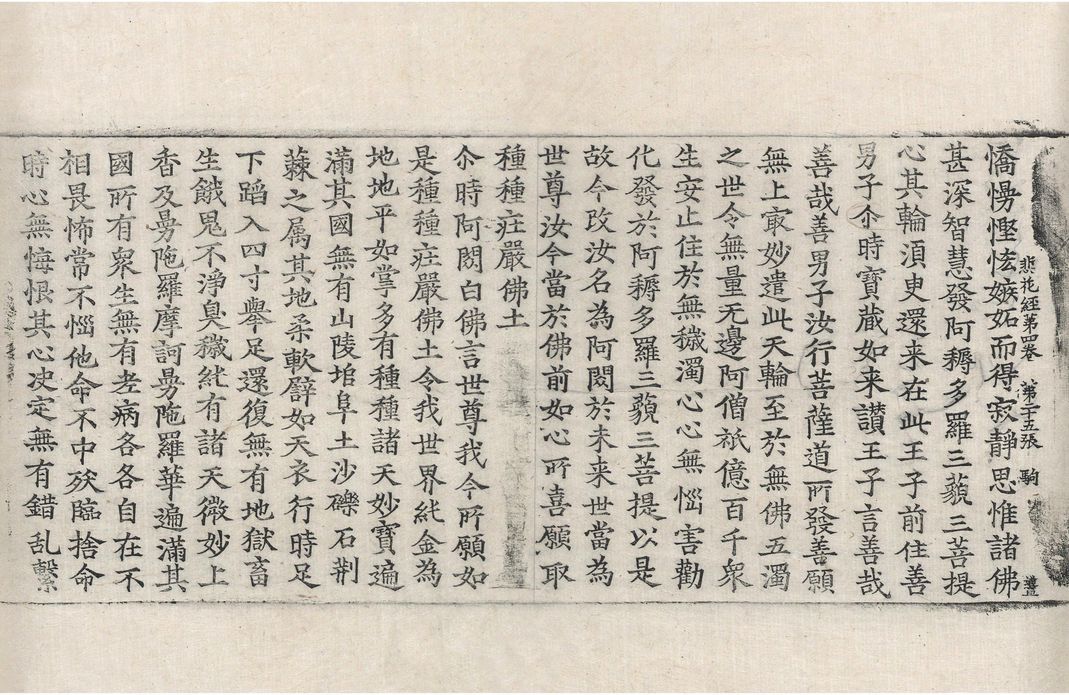 悲花經第四卷　第二十五張　駒
憍慢慳悋嫉妬而得寂靜思惟諸佛
甚深智慧發阿耨多羅三藐三菩提
心其輪湏㬰還来在此王子前住善
男子尒時寶藏如来讃王子言善哉
善哉善男子汝行菩薩道所發善願
無上㝡妙遣此天輪至於無佛五濁
之世令無量无邊阿僧祇億百千衆
生安止住於無穢濁心心無惱害勸
化發於阿耨多羅三藐三菩提以是
故今改汝名為阿閦於未来世當為
世尊汝今當於佛前如心所喜願取
種種莊嚴佛土
尒時阿閦白佛言世尊我今所願如
是種種莊嚴佛土令我世界純金為
地地平如掌多有種種諸天妙寶遍
滿其國無有山陵堆阜土沙礫石荆
蕀之属其地柔軟譬如天衣行時足
下蹈入四寸舉足還復無有地獄畜
生餓鬼不淨臭穢純有諸天微妙上
香及曼陁羅摩訶曼陁羅華遍滿其
國所有衆生無有老病各各自在不
相畏怖常不惱他命不中殀臨捨命
時心無悔恨其心决定無有錯乱繫